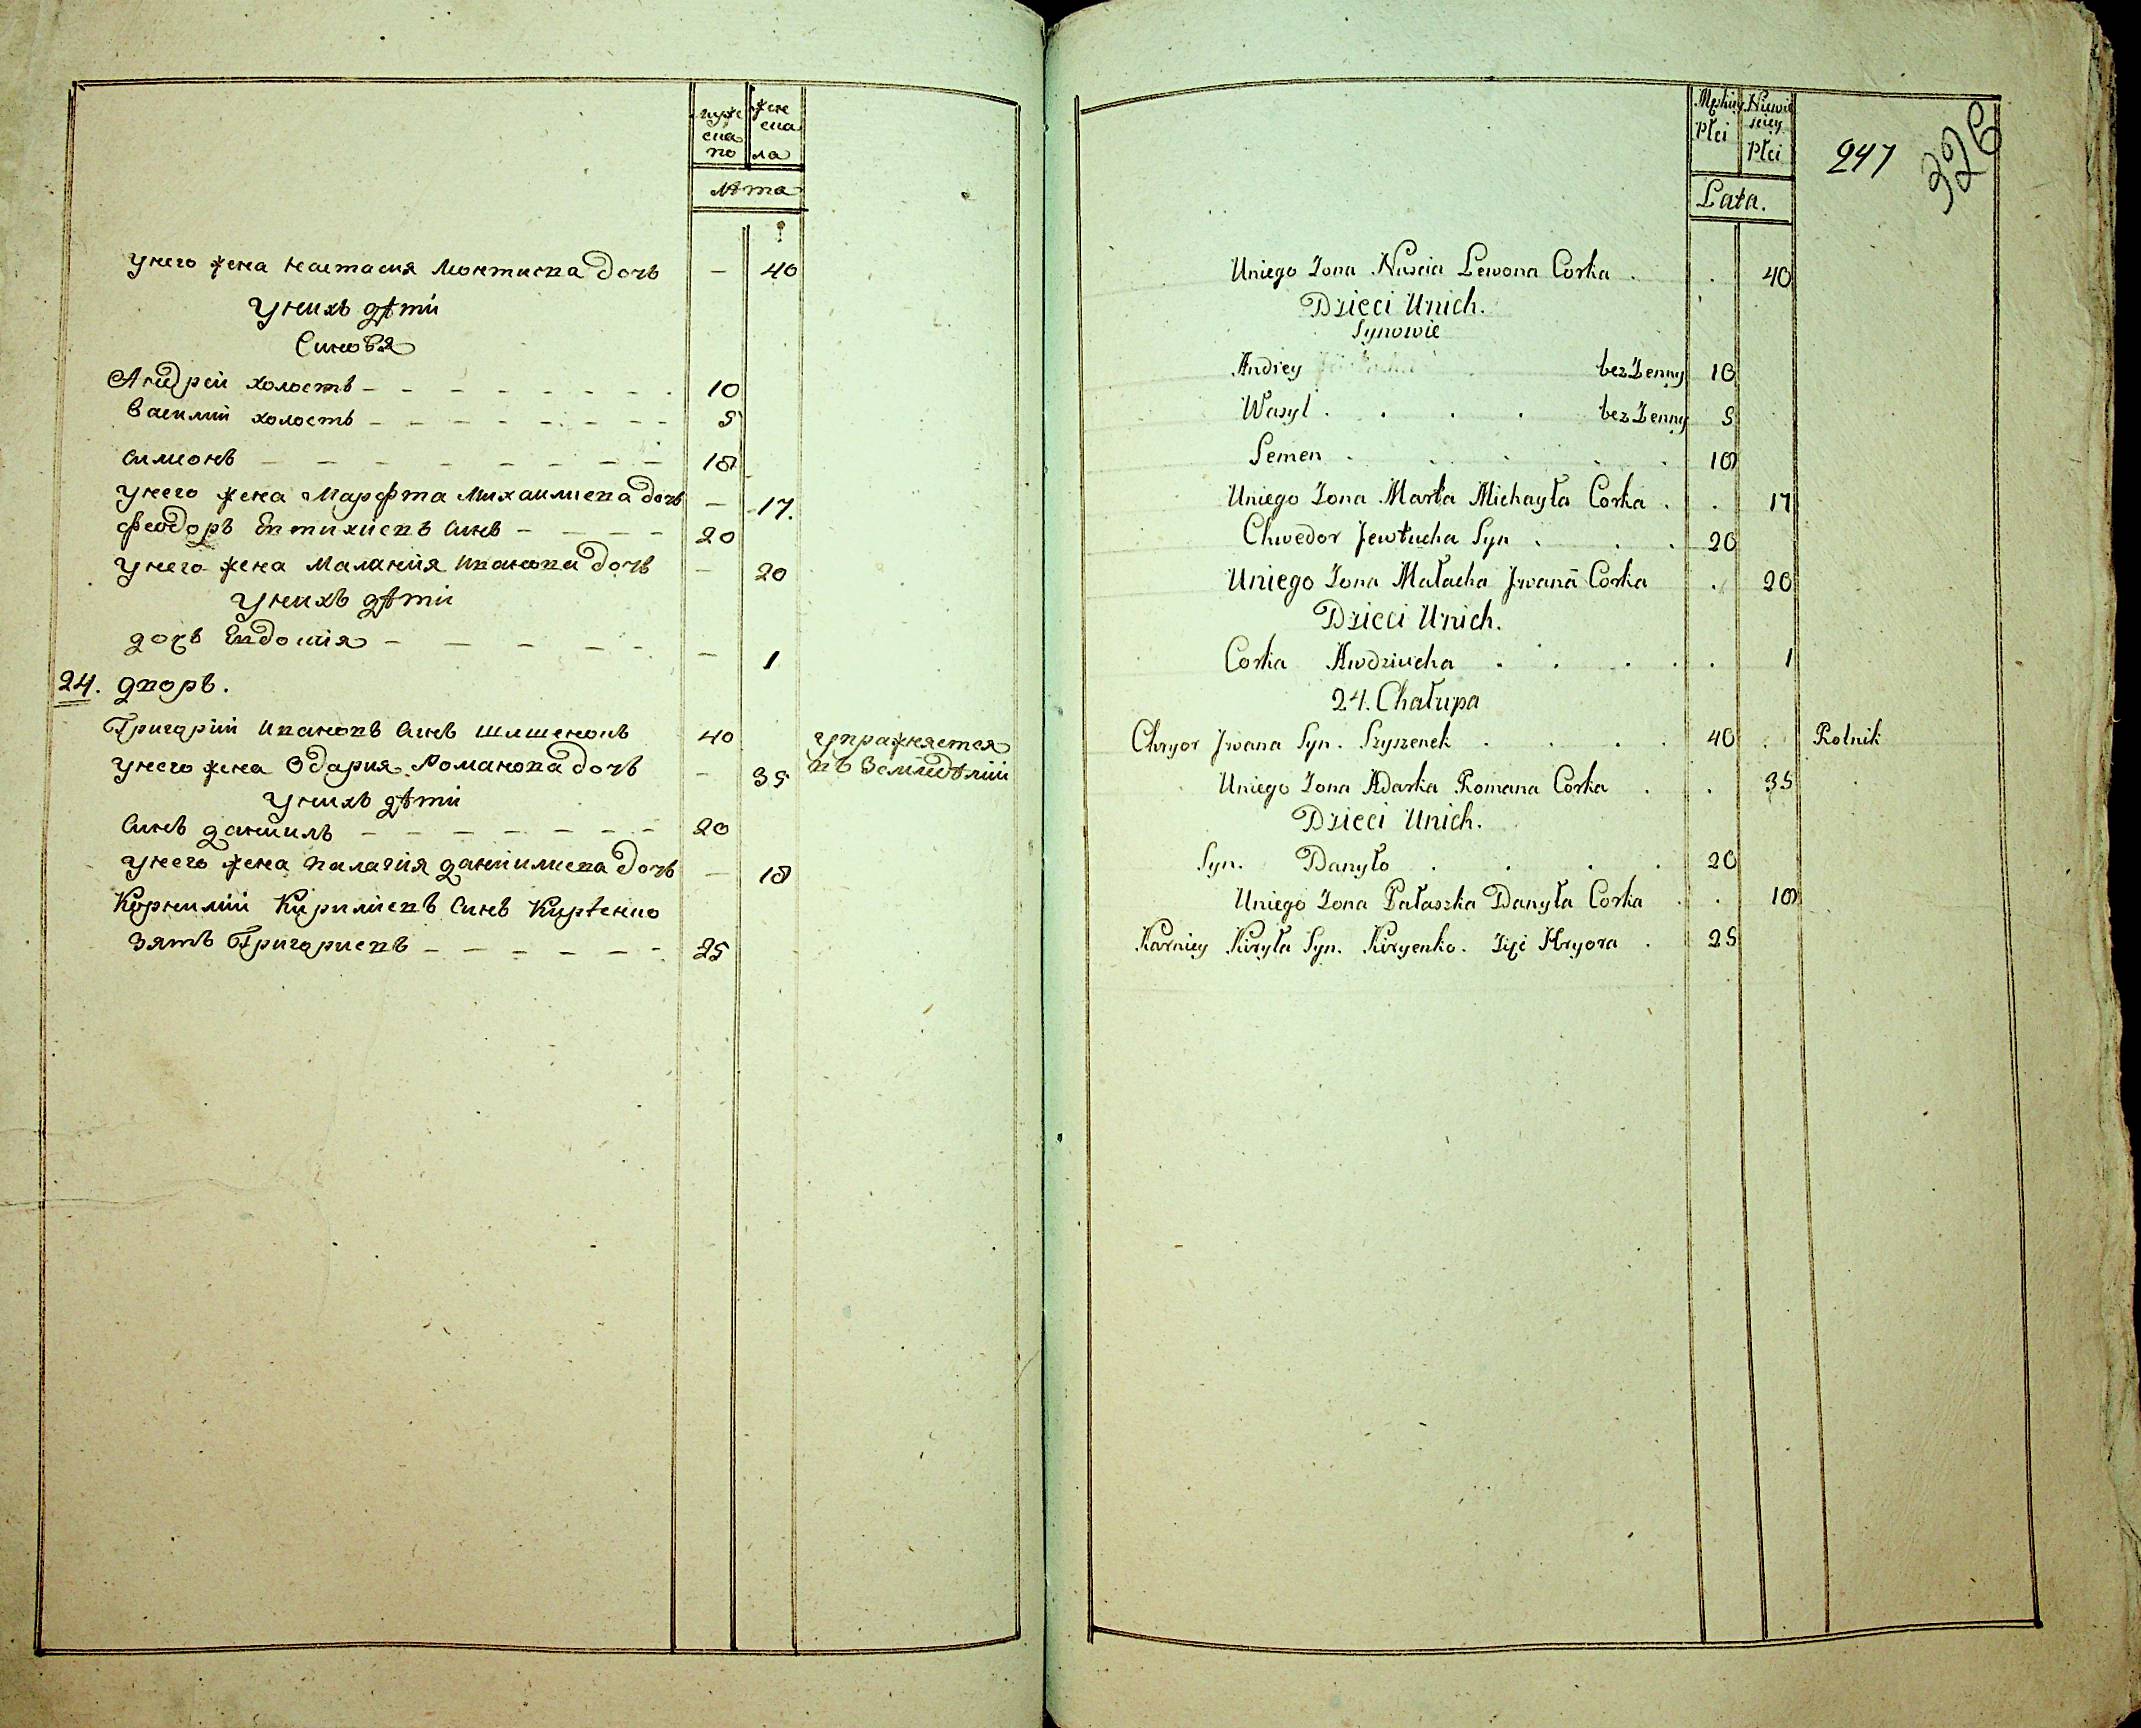 муже
ска
го
жене
ска
ла
лѣта
У него жена Настасия Леонтиева дочь — 40
У нихъ дѣти
Синовя
Андрей холостъ 10
Василий холостъ 5
Симионъ 18
У него жена Марфта Михаилиева дочь — 17.
Феодоръ Евтихиевъ Синъ 20
У него жена Малания Иванова дочь — 20
У нихъ дѣти
дочь Евдошия — 1
24. дворъ.
Григорий Ивановъ Синъ Шишенокъ 40 упражняется
У него жена Одария Романова дочь — 35 въ Землидѣлии
У нихъ дѣти
Синъ даниилъ 20
У него жена Палагия даниилиева дочь — 18
Корнилий Кирилиевъ Синъ Кирѣенко
Зять Григориевъ 25
Męskiey
Płci
Niewie
sciey
Płci
247
326
Lata.
Uniego Zona Nascia Lewona Corka . . 40
Dzieci Unich.
Synowie
Andrey bez Zenny 10
Wasyl . . . . bez Zenny 5
Semen . . . . . 18
Uniego Zona Marta Michayła Corka . . 17
Chwedor Jewtucha Syn . . . 20
Uniego Zona Małacha Jwana Corka . 20
Dzieci Unich.
Corka Awdziucha . . . . . 1
24. Chałupa
Chryor Jwana Syn. Szyszenek . . . . 40 . Rolnik
Uniego Zona Adarka Romana Corka . . 35
Dzieci Unich.
Syn. Danyło . . . . 20
Uniego Zona Pałaszka Danyła Corka . . 18
Karniey Kiryła Syn. Kiryenko. Zięć Hryora . 25